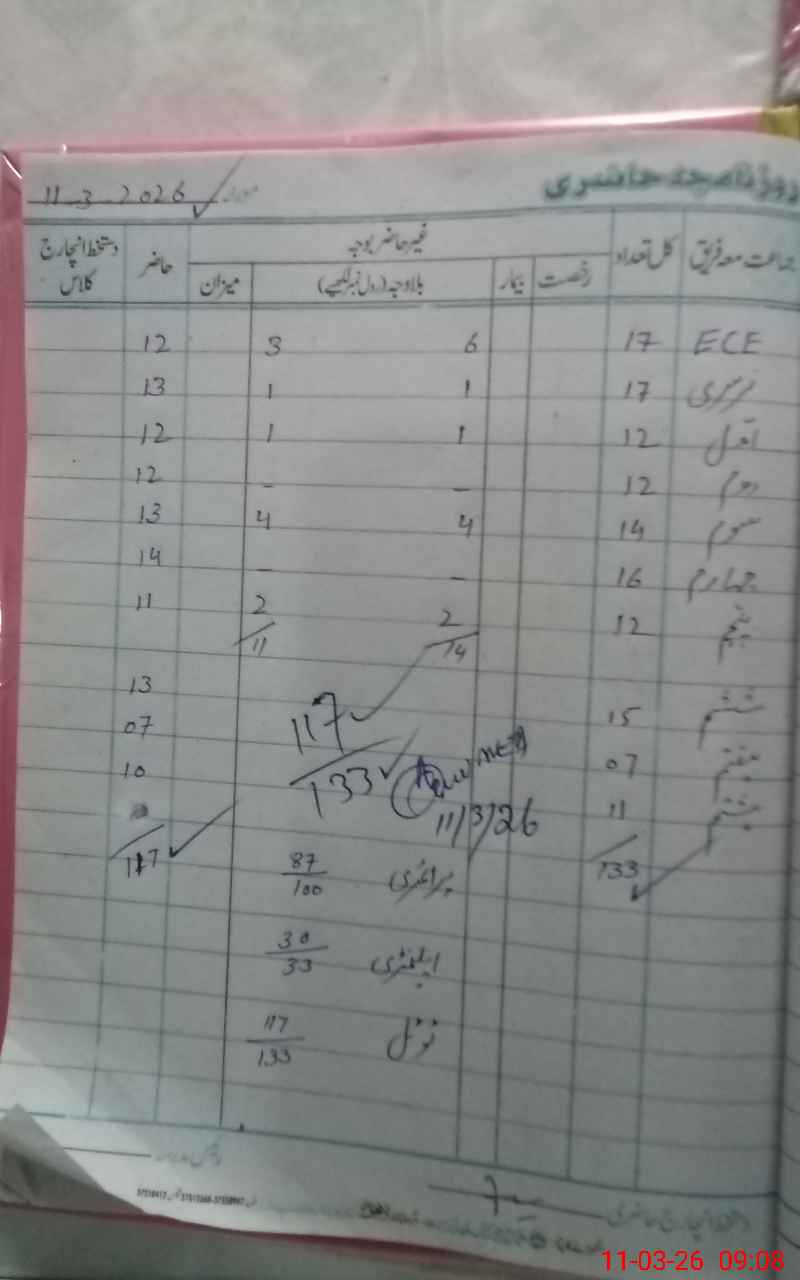 روزنامچہ حاضری
مورخہ 11-3-2026
جماعت معہ فریق کل تعداد غیر حاضر بوجہ حاضر دستخط انچارج کلاس
رخصت بیمار بلاوجہ (رول نمبر لکھیے) میزان
ECE 17 6 3 12
نرسری 17 1 1 13
اول 12 1 1 12
دوم 12 – – 12
سوم 14 4 4 13
چہارم 16 – – 14
پنجم 12 2 2 11
14 11
ششم 15 13
ہفتم 07 07
ہشتم 11 10
133 117
117
133
11/3/26
پرائمری 87/100
ایلیمنٹری 30/33
ٹوٹل 117/133
دستخط انچارج حاضری
11-03-26 09:08